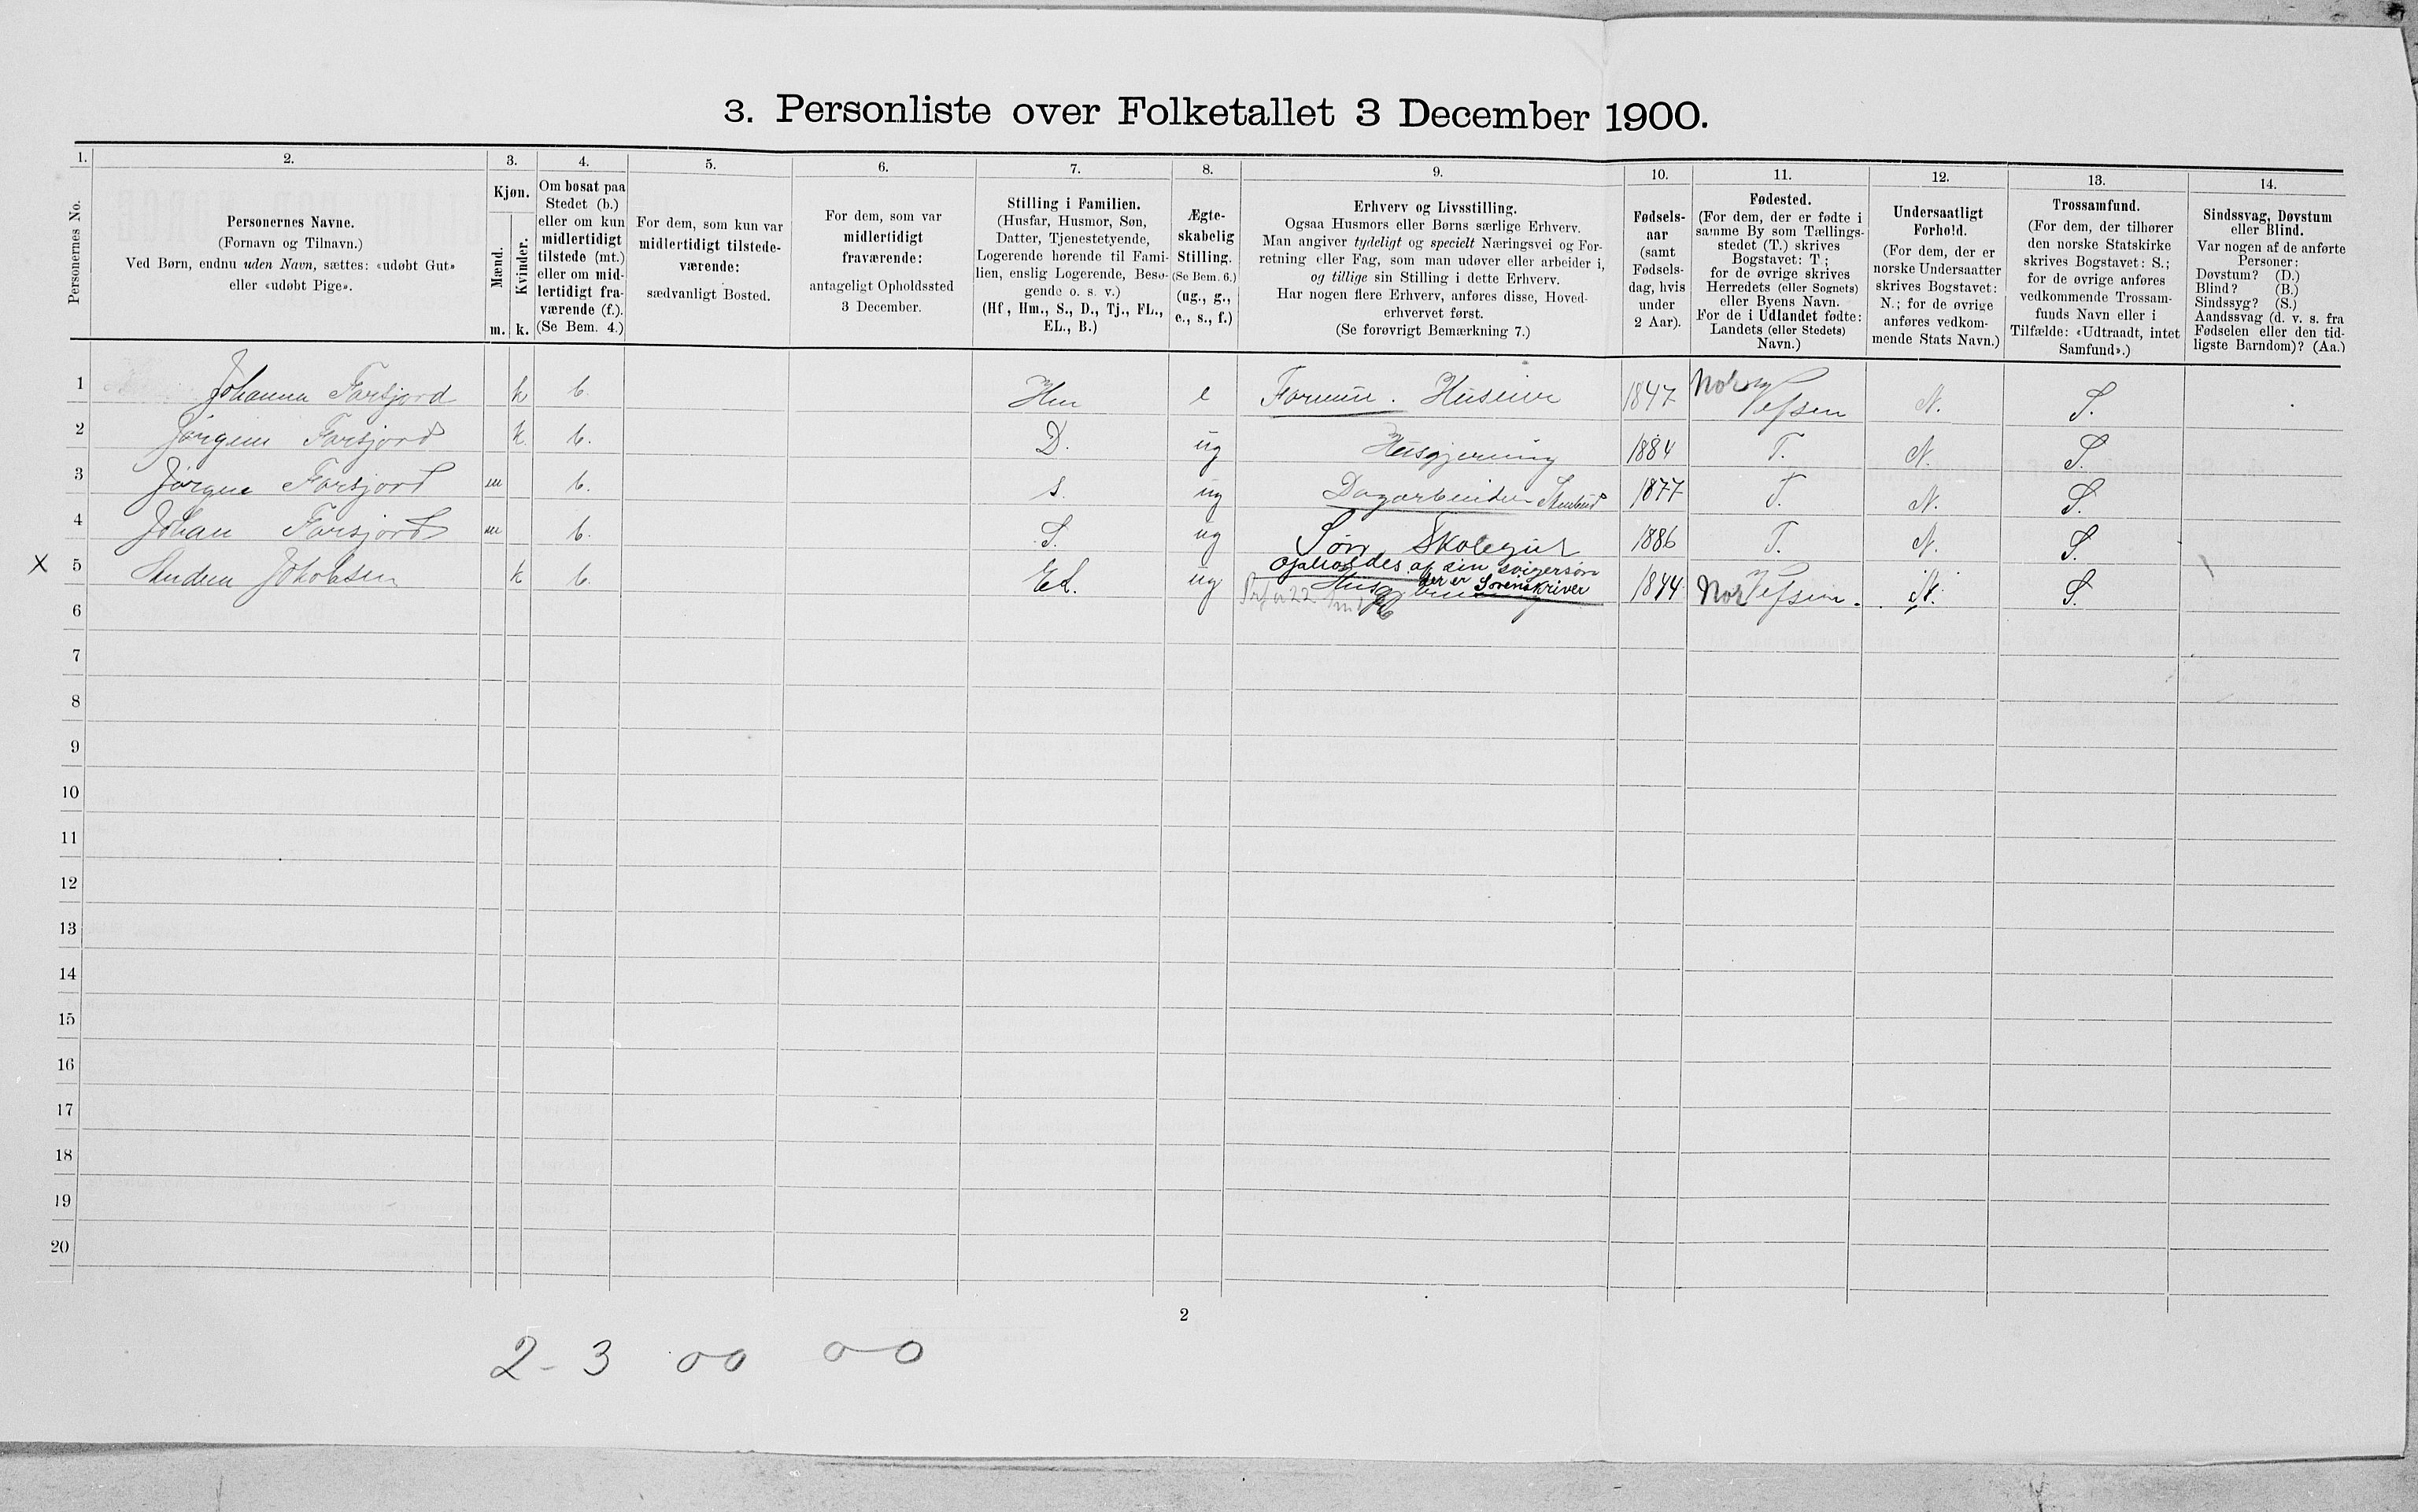 3. Personliste over Folketallet 3 December 1900.
1. 2. 3. 4. 5. 6. 7. 8. 9. 10. 11. 12. 13. 14.
Personernes No.
Personernes Navne.
(Fornavn og Tilnavn.)
Ved Børn, endnu uden Navn, sættes: «udøbt Gut»
eller «udøbt Pige».
Kjøn.
Mænd.
Kvinder.
m. k.
Om bosat paa
Stedet (b.)
eller om kun
midlertidigt
tilstede (mt.)
eller om mid-
lertidigt fra-
værende (f.).
(Se Bem. 4.)
For dem, som kun var
midlertidigt tilstede-
værende:
sædvanligt Bosted.
For dem, som var
midlertidigt
fraværende:
antageligt Opholdssted
3 December.
Stilling i Familien.
(Husfar, Husmor, Søn,
Datter, Tjenestetyende,
Logerende hørende til Fami-
lien, enslig Logerende, Besø-
gende o. s. v.)
(Hf, Hm., S., D., Tj., FL.,
EL., B.)
Ægte-
skabelig
Stilling.
(Se Bem. 6.)
(ug., g.,
e., s., f.)
Erhverv og Livsstilling.
Ogsaa Husmors eller Børns særlige Erhverv.
Man angiver tydeligt og specielt Næringsvei og For-
retning eller Fag, som man udøver eller arbeider i,
og tillige sin Stilling i dette Erhverv.
Har nogen flere Erhverv, anføres disse, Hoved-
erhvervet først.
(Se forøvrigt Bemærkning 7.)
Fødsels-
aar
(samt
Fødsels-
dag, hvis
under
2 Aar).
Fødested.
(For dem, der er fødte i
samme By som Tællings-
stedet (T.) skrives
Bogstavet: T;
for de øvrige skrives
Herredets (eller Sognets)
eller Byens Navn.
For de i Udlandet fødte:
Landets (eller Stedets)
Navn.)
Undersaatligt
Forhold.
(For dem, der er
norske Undersaatter
skrives Bogstavet:
N.; for de øvrige
anføres vedkom-
mende Stats Navn.)
Trossamfund.
(For dem, der tilhører
den norske Statskirke
skrives Bogstavet: S.;
for de øvrige anføres
vedkommende Trossam-
funds Navn eller i
Tilfælde: «Udtraadt, intet
Samfund».)
Sindssvag, Døvstum
eller Blind.
Var nogen af de anførte
Personer:
Døvstum? (D.)
Blind? (B.)
Sindssyg? (S.)
Aandssvag (d. v. s. fra
Fødselen eller den tid-
ligste Barndom)? (Aa.)
1 Johanna Forsjord k b. Hm e Formue. Huseier 1847 Vefsen N. S.
2 Jørgine Forsjord k. b. D. ug Husgjerning 1884 T. N. S.
3 Jørgen Forsjord m b. S. ug Dagarbeider 1877 T. N. S.
4 Johan Forsjord m b. S. ug Søn, Skolegut 1886 T. N. S.
X 5 Jakobsen k b. EL. ug Opholdes af sin svigersøn 1844 Nor Vefsen. N. S.
der er Sorenskriver
Husgjerning
6
7
8
9
10
11
12
13
14
15
16
17
18
19
20
2
2-3 00 00